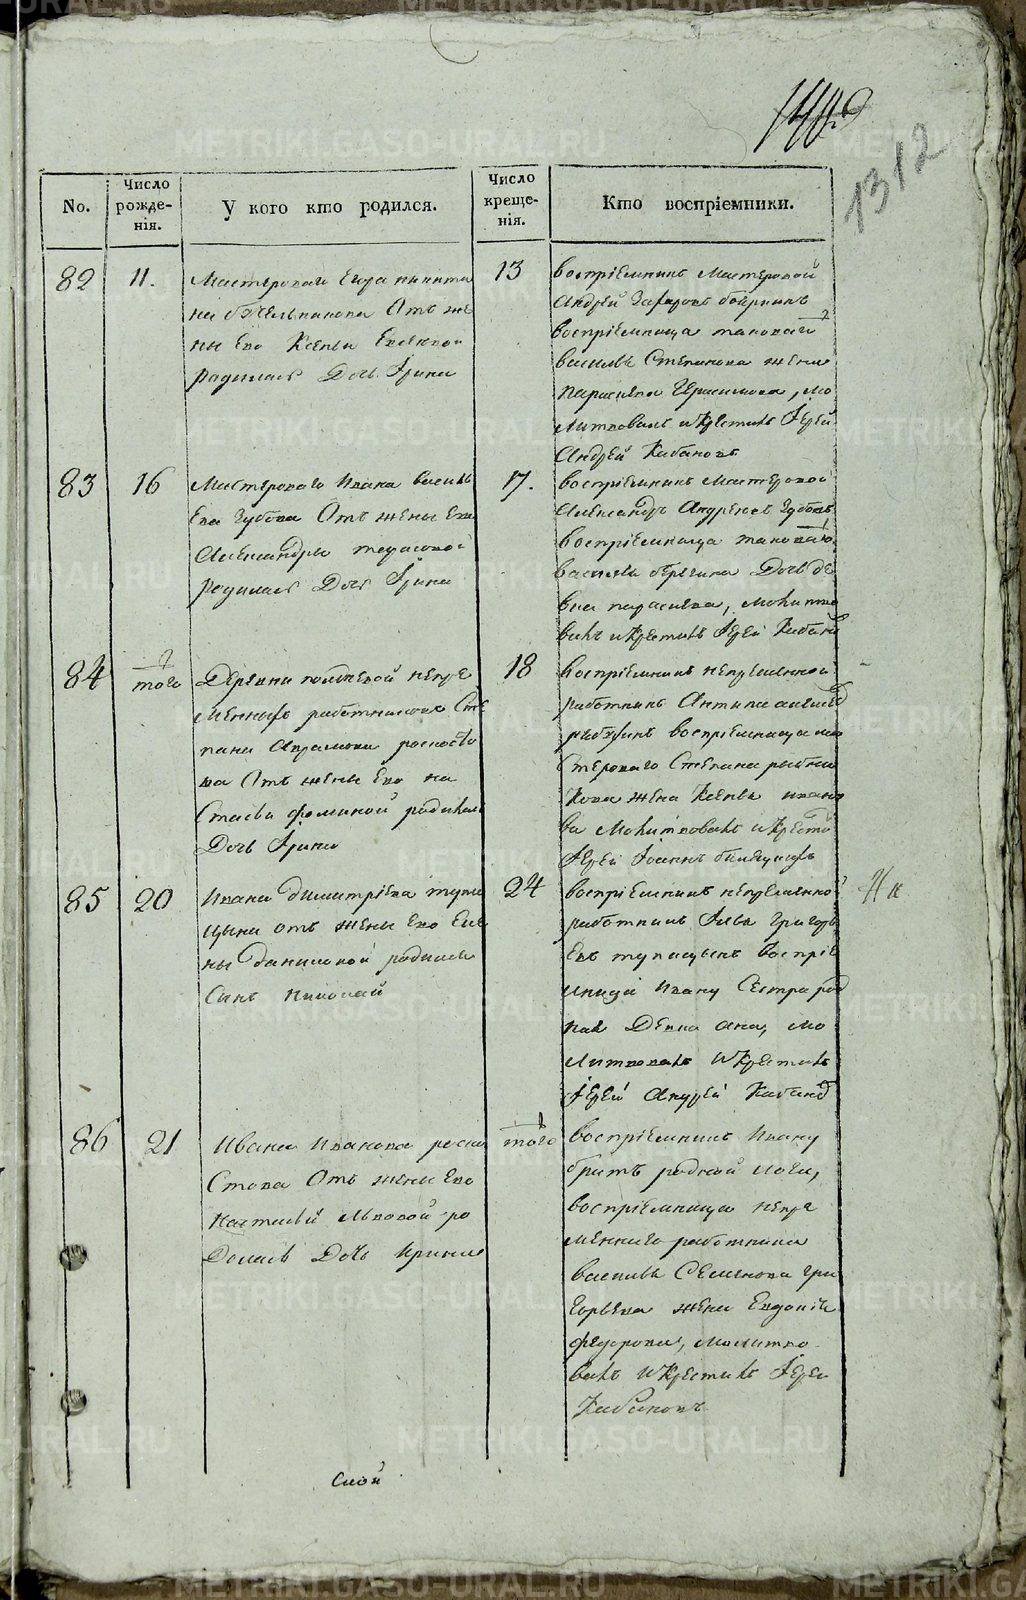 1312
No.
Число рожде-нія.
У кого кто родился.
Число креще-нія.
Кто воспріемники.
82
11.
Мастероваго Егора никити
на Отъ же
ны Его Ксеньи
родилась Дочь Ірина
13
воспріемникъ Мастеровой
Андрей
воспріемница таковаго
василья Степанова жена
параскева Герасимова, мо
литвовалъ и Крестилъ Іерей
Андрей Кабановъ
83
16
Мастероваго Ивана василь
Ева Зубова Отъ жены Ево
Александры
родилась Дочь Ірина
17.
воспріемникъ Мастеровой
Александръ Андреевъ Зубовъ
воспріемница таковаго
василья Дочь де
вка параскева, молитво
валъ и Крестилъ Іерей Кабановъ
84
того
Деревни полдневой непре
меннаго работника Сте
пана Абрамова
ва Отъ жены Ево на
стасьи фоминой родилась
Дочь Ірина
18
воспріемникъ непременной
работникъ Антипа
воспріемница ма
стероваго Степана
кова жена Ксенья ивано
ва Молитвовалъ и Крестилъ
Іерей Іоаннъ
85
20
Ивана димитріева
цына отъ жены Ево Еле
ны даниловой родился
Сынъ Николай
24
воспріемникъ непременной
работникъ Илья Григорь
Евъ воспріе
мница Ивану Сестра род
ная Девка ана, мо
литвовалъ и Крестилъ
Іерей Андрей Кабановъ
86
21
Ивана Иванова
стова Отъ жены Ево
Настасьи Львовой ро
дилась Дочь Ирина
того
воспріемникъ Ивану
братъ родной
воспріемница непре
меннаго работника
василья Семенова гри
горьева жена Евдокія
федорова, молитво
валъ и Крестилъ Іерей
Кабановъ
METRIKI.GASO-URAL.RU